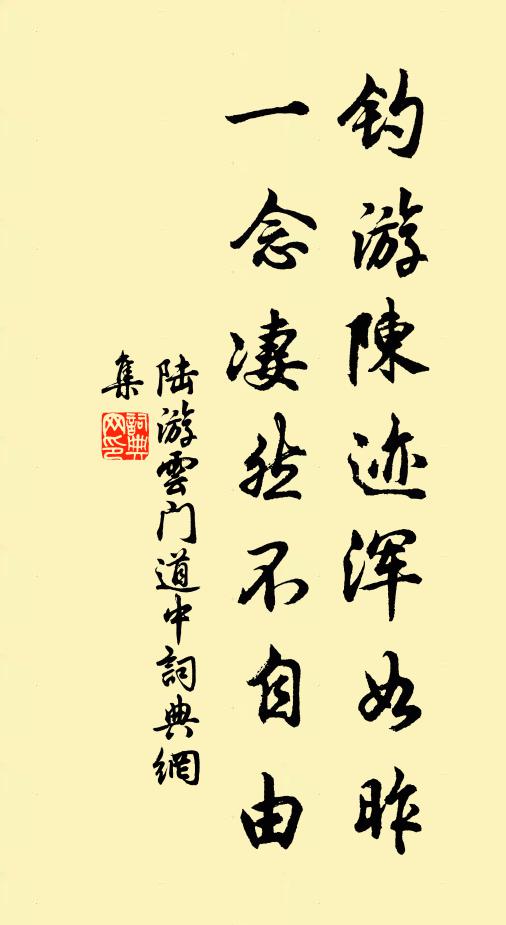 钓游陳迹浑如昨
一念凄然不自由
陆游雲门道中詞典網
集
詞典网印